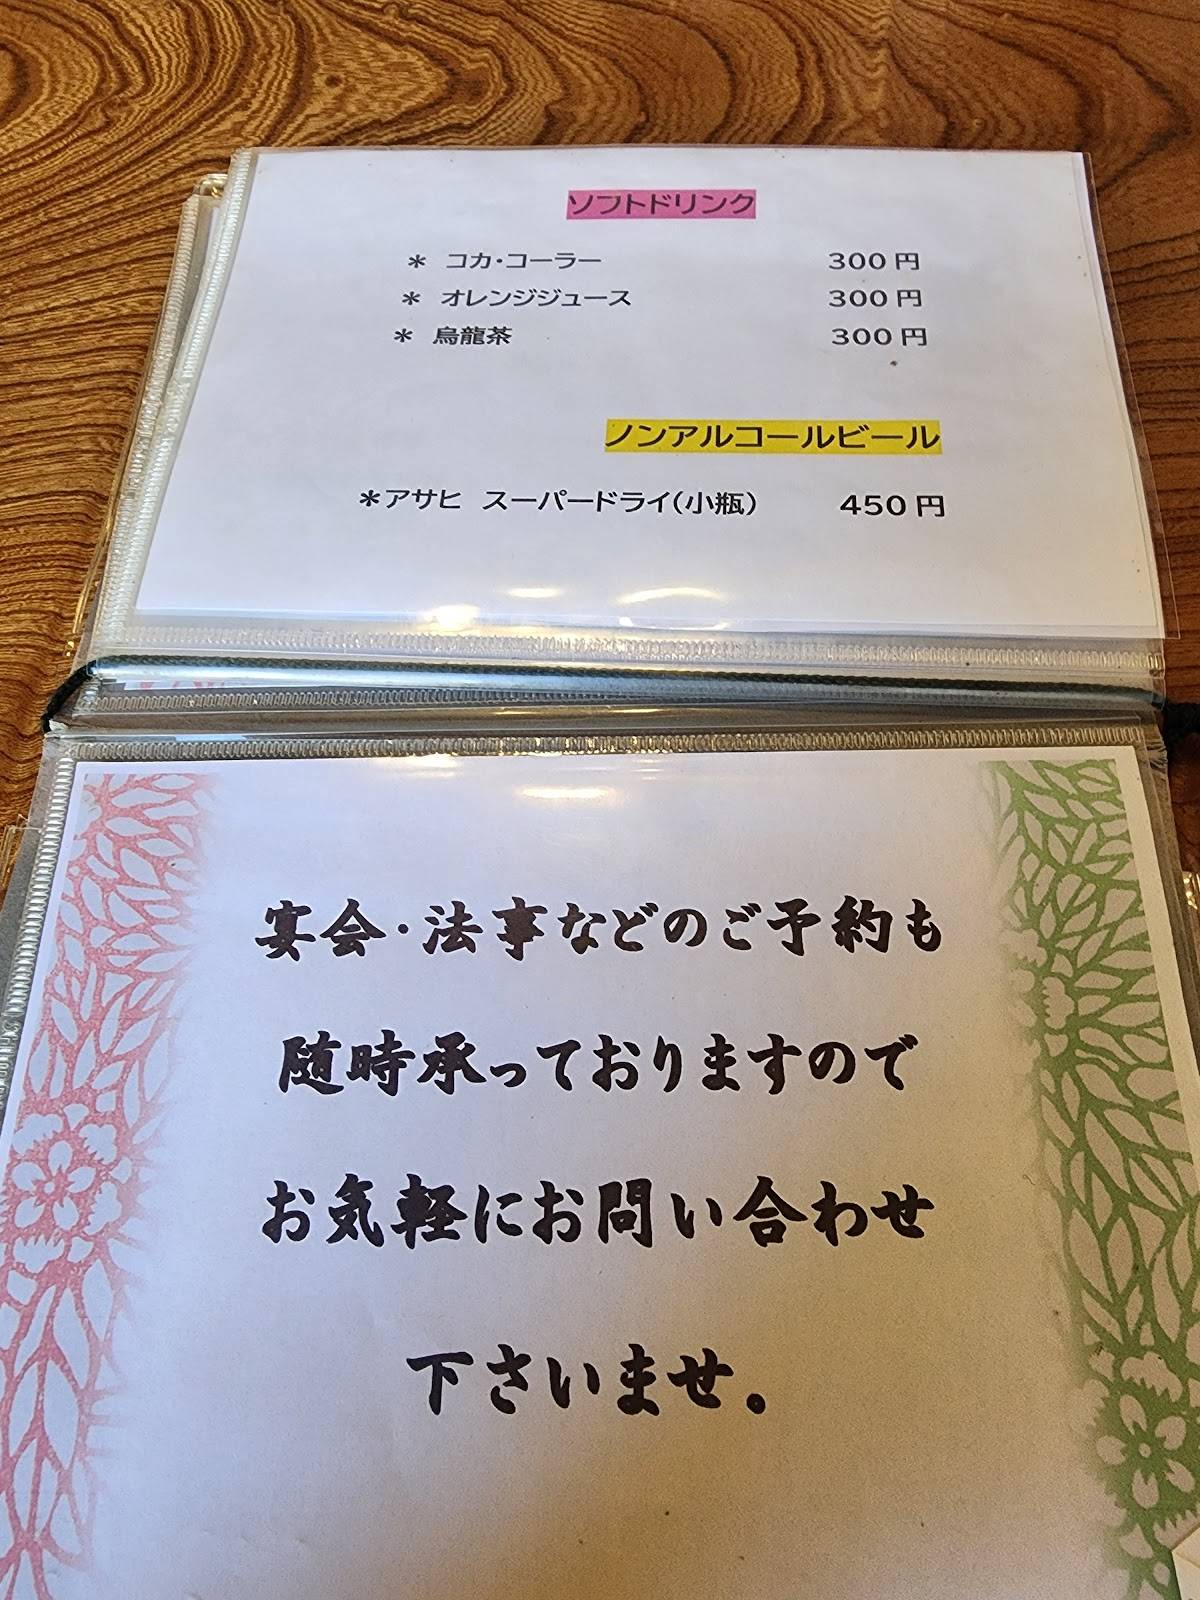 ソフトドリンク
＊ コカ・コーラー 300円
＊ オレンジジュース 300円
＊ 烏龍茶 300円
ノンアルコールビール
＊アサヒ スーパードライ(小瓶) 450円
宴会・法事などのご予約も
随時承っておりますので
お気軽にお問い合わせ
下さいませ。